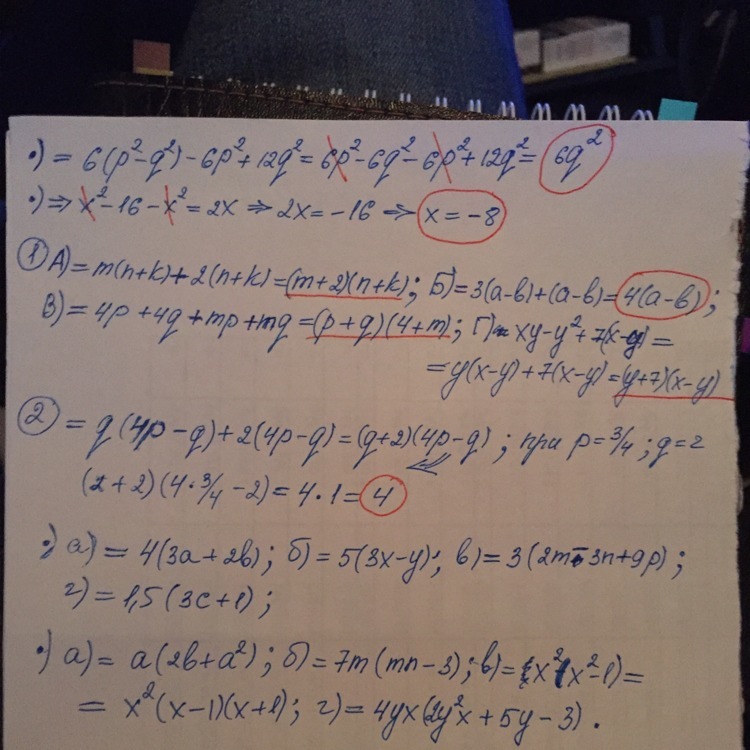 ·) = 6(p²-q²)-6p²+12q² = 6p²-6q²-6p²+12q² = 6q²
·) ⇒ x²-16-x² = 2x ⇒ 2x = -16 ⇒ x = -8
① А) = m(n+k)+2(n+k) = (m+2)(n+k); Б) = 3(a-b)+(a-b) = 4(a-b);
В) = 4p+4q+mp+mq = (p+q)(4+m); Г) = xy-y²+7(x-y) =
= y(x-y)+7(x-y) = (y+7)(x-y)
② = q(4p-q)+2(4p-q) = (q+2)(4p-q); при p = 3/4; q = 2
(2+2)(4·3/4-2) = 4·1 = 4
·) а) = 4(3a+2b); б) = 5(3x-y); в) = 3(2m-3n+9p);
г) = 1,5(3c+1);
·) а) = a(2b+a²); б) = 7m(mn-3); в) = x²(x²-1) =
= x²(x-1)(x+1); г) = 4yx(2y²x+5y-3).